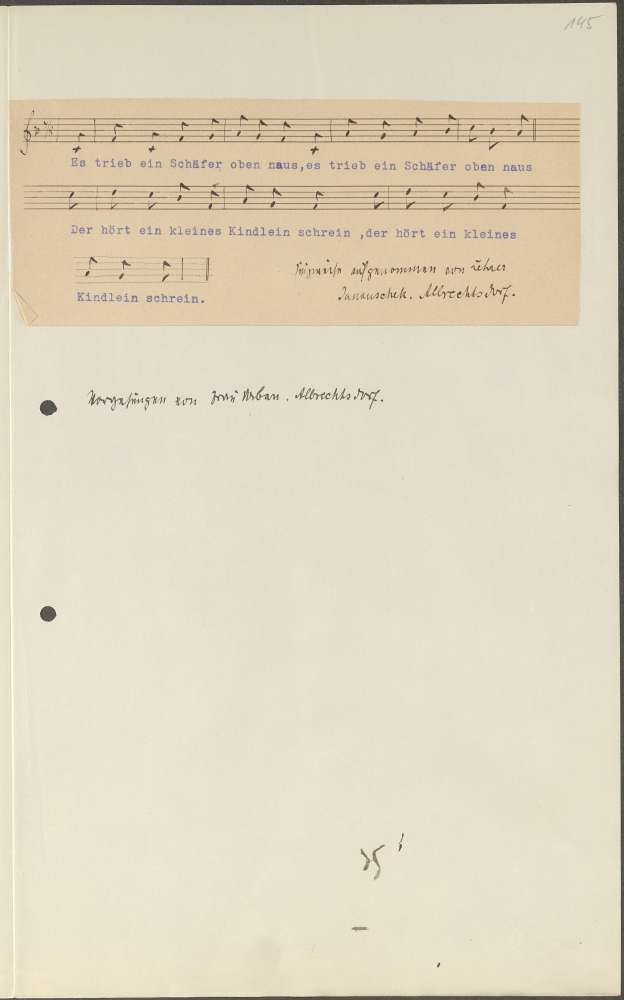 145
Es trieb ein Schäfer oben naus,es trieb ein Schäfer oben naus
Der hört ein kleines Kindlein schrein ,der hört ein kleines
Kindlein schrein.
Singweise aufgenommen von Lehrer
Janauschek. Albrechtsdorf.
Vorgesungen von Frau Urban. Albrechtsdorf.